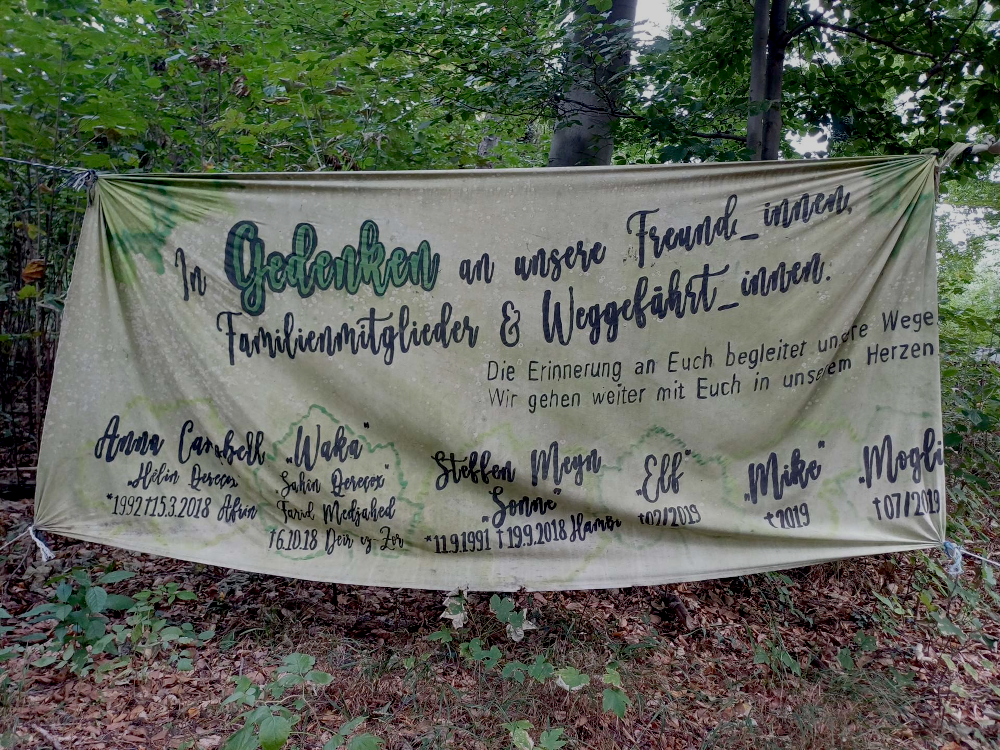 In Gedenken an unsere Freund_innen,
Familienmitglieder & Weggefährt_innen.
Die Erinnerung an Euch begleitet unsere Wege.
Wir gehen weiter mit Euch in unserem Herzen
Anna Campbell
„Hêlîn Qerecox"
*1992 †15.3.2018 Afrin
„Waka"
„Şahin Qerecox"
Farid Medjahed
†6.10.18 Deir ez Zor
Steffen Meyn
„Sonne"
*11.9.1991 †19.9.2018 Hambi
„Elf"
†02/2019
„Mike"
†2019
„Mogli
†07/2019